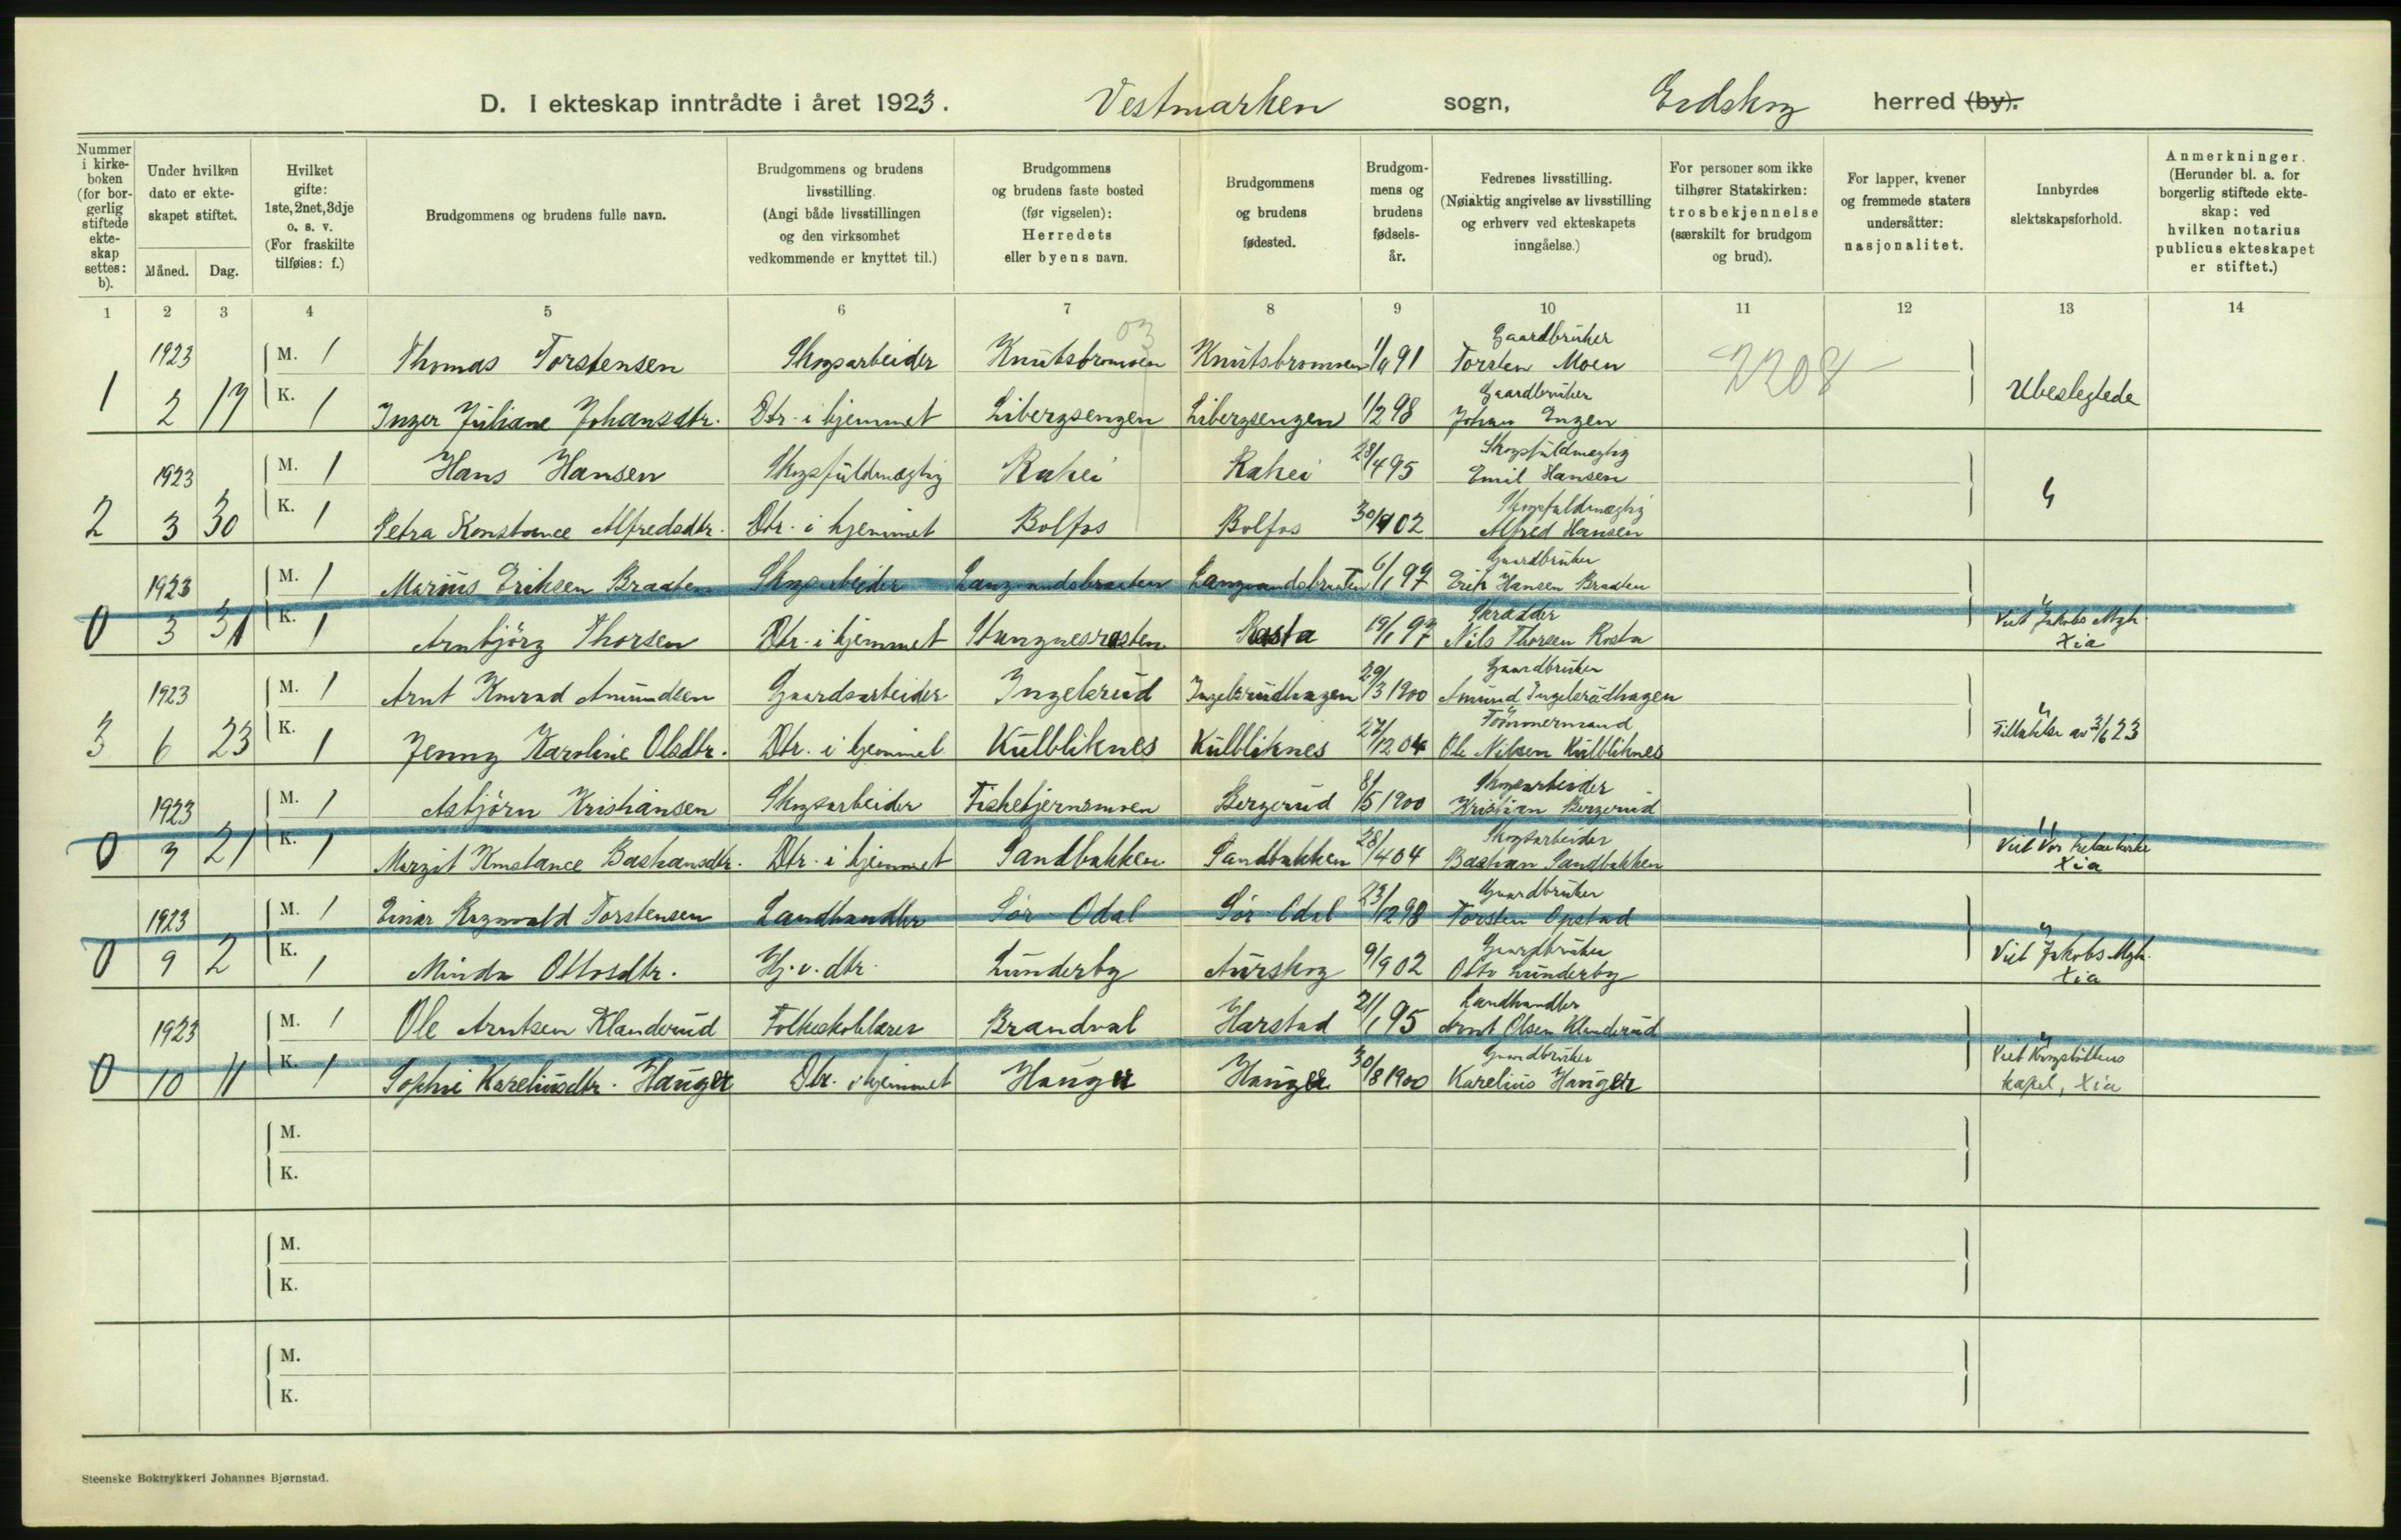 D. I ekteskap inntrådte i året 1923. Vestmarken sogn, Eidskog herred (by).
Nummer i kirke-boken (for bor-gerlig stiftede ekte-skap settes: b).
Under hvilken dato er ekte-skapet stiftet.
Måned. Dag.
Hvilket gifte: 1ste, 2net, 3dje o. s. v. (For fraskilte tilføies: f.)
Brudgommens og brudens fulle navn.
Brudgommens og brudens livsstilling. (Angi både livsstillingen og den virksomhet vedkommende er knyttet til.)
Brudgommens og brudens faste bosted (før vigselen): Herredets eller byens navn.
Brudgommens og brudens fødested.
Brudgom-mens og brudens fødsels-år.
Fedrenes livsstilling. (Nøiaktig angivelse av livsstilling og erhverv ved ekteskapets inngåelse.)
For personer som ikke tilhører Statskirken: trosbekjennelse (særskilt for brudgom og brud).
For lapper, kvener og fremmede staters undersåtter: nasjonalitet.
Innbyrdes slektskapsforhold.
Anmerkninger. (Herunder bl. a. for borgerlig stiftede ekte-skap: ved hvilken notarius publicus ekteskapet er stiftet.)
1 2 3 4 5 6 7 8 9 10 11 12 13 14
03
Gaardbruker
1923 M. 1 Thomas Torstensen Skogsarbeider Knutsbromoen Knutsbromoen 91 Torsten Moen 2208
Gaardbruker
1 2 17 K. 1 Inger Juliane Johansdtr. Dtr. i hjemmet Libergsengen Libergsengen 1/2 98 Johan Engen Ubeslegtede
Skogsfuldmægtig
1923 M. 1 Hans Hansen Skogsfuldmægtig Rakei Rakei 28/4 95 Emil Hansen
Skogsfuldmægtig
2 3 30 K. 1 Petra Konstance Alfredsdtr. Dtr. i hjemmet Bolfos Bolfos 02 Alfred Hansen "
Gaardbruker
1923 M. 1 Marius Eriksen Braaten Skogsarbeider Langsundsbraaten Langsundsbraaten 6/1 97 Erik Hansen Braaten
Skrædder "
0 3 31 K. 1 Arnbjörg Thorsen Dtr. i hjemmet Stangnesrasten Rasta 19/1 97 Nils Thorsen Rosta Viet Jakobs Mgh.
Xia
Gaardbruker
1923 M. 1 Arnt Konrad Amundsen Gaardsarbeider Ingelsrud Ingelsrudhagen 29/3 1900 Amund Ingelsrudhagen
Tömmermand "
3 6 23 K. 1 Jenny Karoline Olsdtr. Dtr. i hjemmet Kulbliknes Kulbliknes 27/12 04 Ole Nilsen Kulbliknes Tillatelse av 3/6 23
Skogsarbeider
1923 M. 1 Asbjörn Kristiansen Skogsarbeider Fisketjernsmoen Bergerud 8/5 1900 Kristian Bergerud
Skogsarbeider "
0 7 21 K. 1 Margit Konstance Bastiansdtr. Dtr. i hjemmet Sandbakken Sandbakken 28/4 04 Bastian Sandbakken Viet Vor Frelsers kirke
Xia
Gaardbruker
1923 M. 1 Einar Ragnvald Torstensen Landhandler Sör-Odal Sör-Odal 23/12 98 Torsten Opstad
Gaardbruker "
0 9 2 K. 1 Minda Ottosdtr. Hj. v. dtr. Lunderby Aurskog 9/9 02 Otto Lunderby Viet Jakobs Mgh.
Xia
Landhandler
1923 M. 1 Ole Arntsen Klanderud Folkeskolelærer Brandval Harstad 21/1 95 Arnt Olsen Klanderud
Gaardbruker "
0 10 11 K. 1 Sophie Kareliusdtr. Hauger Dtr. i hjemmet Hauger Hauger 30/8 1900 Karelius Hauger Viet Krogstöttens
kapel, Xia
M.
K.
M.
K.
M.
K.
Steenske Boktrykkeri Johannes Bjørnstad.